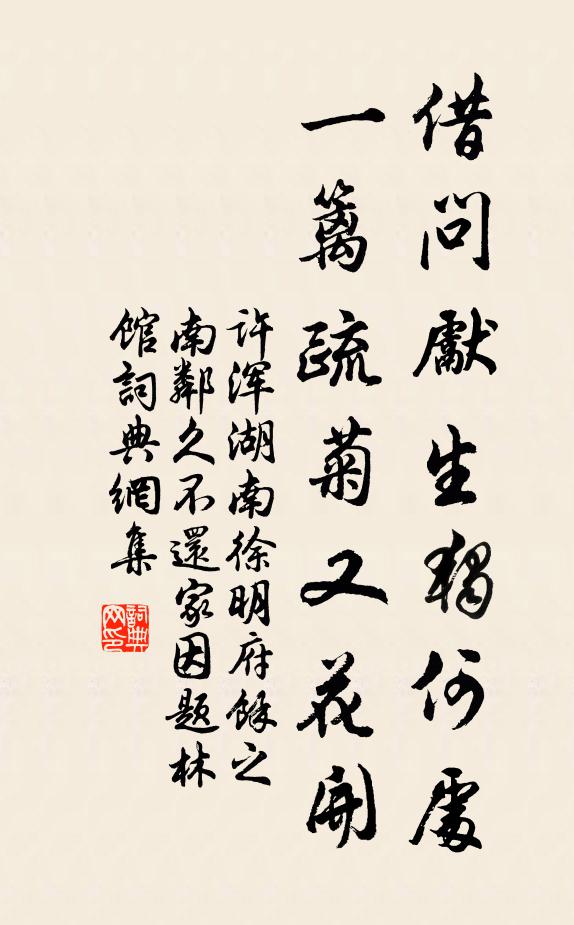 借問獻生獨何處
一籬疏菊又花開
許渾湖南徐明府餘之
南鄰久不還家因題林
館詞典網集
詞典网印